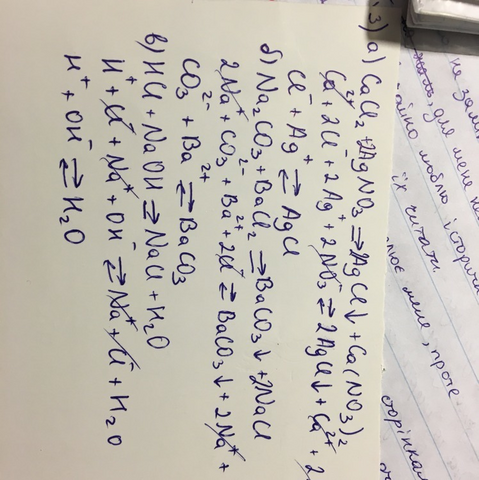 3) а) CaCl₂ + 2AgNO₃ ⇒ 2AgCl↓ + Ca(NO₃)₂
Ca²⁺ + 2Cl⁻ + 2Ag⁺ + 2NO₃⁻ ⇄ 2AgCl↓ + Ca²⁺ + 2
Cl⁻ + Ag⁺ ⇄ AgCl
б) Na₂CO₃ + BaCl₂ ⇒ BaCO₃↓ + 2NaCl
2Na⁺ + CO₃²⁻ + Ba²⁺ + 2Cl⁻ ⇄ BaCO₃↓ + 2Na⁺ +
CO₃²⁻ + Ba²⁺ ⇄ BaCO₃
в) HCl + NaOH ⇒ NaCl + H₂O
H⁺ + Cl⁻ + Na⁺ + OH⁻ ⇄ Na⁺ + Cl⁻ + H₂O
H⁺ + OH⁻ ⇄ H₂O
не
для мене
люблю історич
їх читати
мене, проте
сторінка